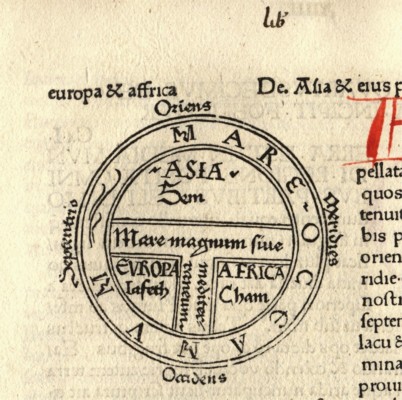 lib̄
europa & affrica
De. Asia & eius p
Oriens
MARE OCEANVM
ASIA
Sem
Mare magnum siue
mediterraneum
EVROPA
Iafeth
AFRICA
Cham
Septentrio
Meridies
Occidens
pellata
quos
tenuit
bis p
orien
ridie
nostr
septen
lacu &
mina
prouin